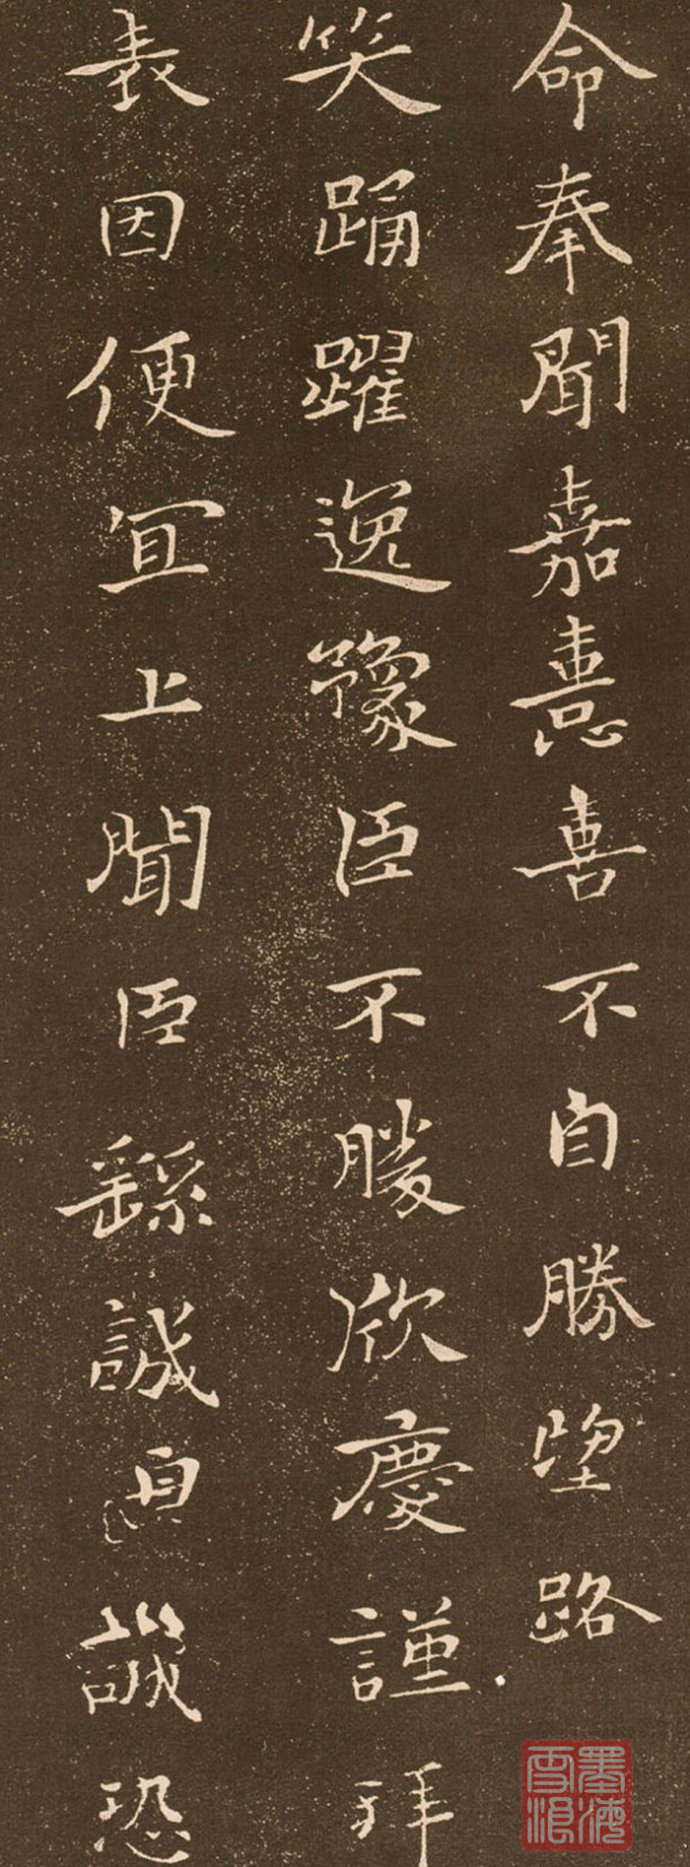 命奉聞嘉憙喜不自勝望路
笑踊躍逸豫臣不勝欣慶謹拜
表因便宜上聞臣繇誠惶誠恐
墨海
雪浪